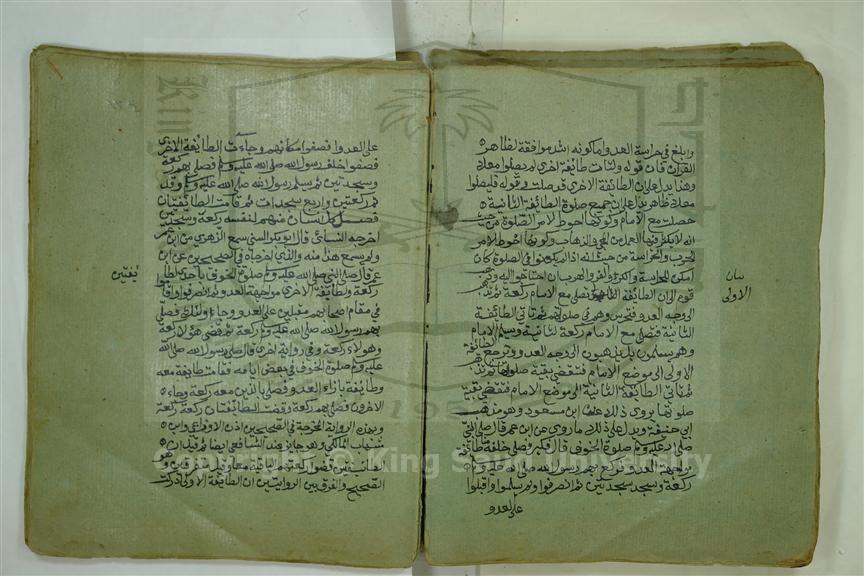 وابلغ في حراسة العدو واما كونه اشد موافقة لظاهر
القران فان قوله ولتات طائفة اخرى لم يصلوا معك
وهذا يدل على ان الطائفة الاخرى قد صلت وقوله فليصلوا
معك ظاهره يدل على ان جميع صلوة الطائفة الثانية
حصلت مع الامام وكونها احوط لامر الصلوة من حيث
انه لا يكثر فيها العمل من المجي والذهاب وكونها احوط لامر
الحرب والحراسة من حيث انه اذا لم يكونوا في الصلوة كان
امكن للحراسة والكر والفر والهرب ان احتاجوا اليه وذهب
قوم الى ان الطائفة تصلي مع الامام ركعة ثم تذهب
الى وجه العدو فتحرس وهم في صلوتهم ثم تاتي الطائفة
الثانية فتصلي مع الامام ركعة الثانية ويسلم الامام
وهم لا يسلمون بل يذهبون الى وجه العدو وترجع الطائفة
الاولى الى موضع الامام فتقضي بقية صلوتها ثم تذهب
ثم تاتي الطائفة الثانية الى موضع الامام فتقضي بقية
صلوتها يروى ذلك عن ابن مسعود وهو مذهب
ابي حنيفة ويدل على ذلك ما روي عن ابن عمر قال صلى النبي
صلى الله عليه وسلم صلوة الخوف قال فكبر فصلى خلفه طائفة
مواجهة العدو فركع بهم رسول الله صلى الله عليه وسلم
ركعة وسجد سجدتين ثم انصرفوا ولم يسلموا واقبلوا
على العدو
بيان
الاولى
على العدو فصفوا مكانهم وجاءت الطائفة الاخرى
فصفوا خلف رسول الله صلى الله عليه وسلم فصلى بهم ركعة
وسجدتين ثم سلم رسول الله صلى الله عليه وسلم وقد
تم ركعتين واربع سجدات ثم قامت الطائفتان
فصلى كل انسان منهم لنفسه ركعة وسجدتين
اخرجه النسائي قال ابو بكر السني سمع الزهري من ابن عمر
ولم يسمع هذا منه والذي اخرجاه في الصحيحين عن ابن
عمر قال صلى النبي صلى الله عليه وسلم صلوة الخوف باحدى الطا
ئفتين
ركعة والطائفة الاخرى مواجهة العدو ثم انصرفوا وقاموا
في مقام اصحابهم مقبلين على العدو وجاء اولئك فصلى
بهم رسول الله صلى الله عليه وسلم ركعة ثم قضى هؤلاء ركعة
وهولاء ركعة وفي رواية اخرى قال صلى رسول الله صلى الله
عليه وسلم صلوة الخوف في بعض ايامه فقامت طائفة معه
وطائفة بازاء العدو فصلى بالذين معه ركعة وجاء
الاخرون فصلى بهم ركعة وقضت الطائفتان ركعة ركعة
وبهذه الرواية المخرجة في الصحيحين اخذ الاوزاعي وابن
المالكي وهو جائز عند الشافعي ايضا ثم قيل ان
الطائفتين قضوا ركعتهم الباقية معا وقيل متفرقين وهو
الصحيح والفرق بين الروايتين ان الطائفة الاولى ادركت